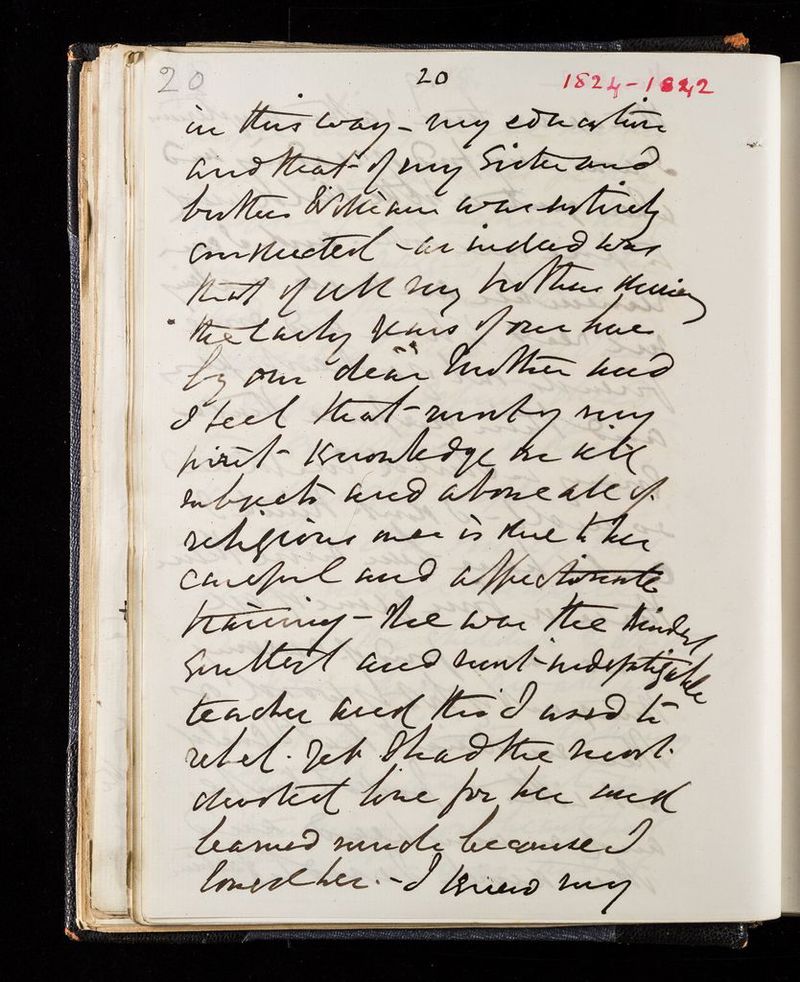 20 20 1824-1842
in this way - my education
and that of my Sister and
brother William was entirely
conducted - as indeed was
that of all my brothers during
the early years of our lives
by our dear Mother and
I feel that mostly my
first knowledge on all
subjects and above all of
religious ones is due to her
careful and affectionate
training - She was the kindest
gentlest and most indefatigable
teacher and tho' I used to
rebel. Yet I had the most
devoted love for her and
learned much because I
loved her. - I knew my